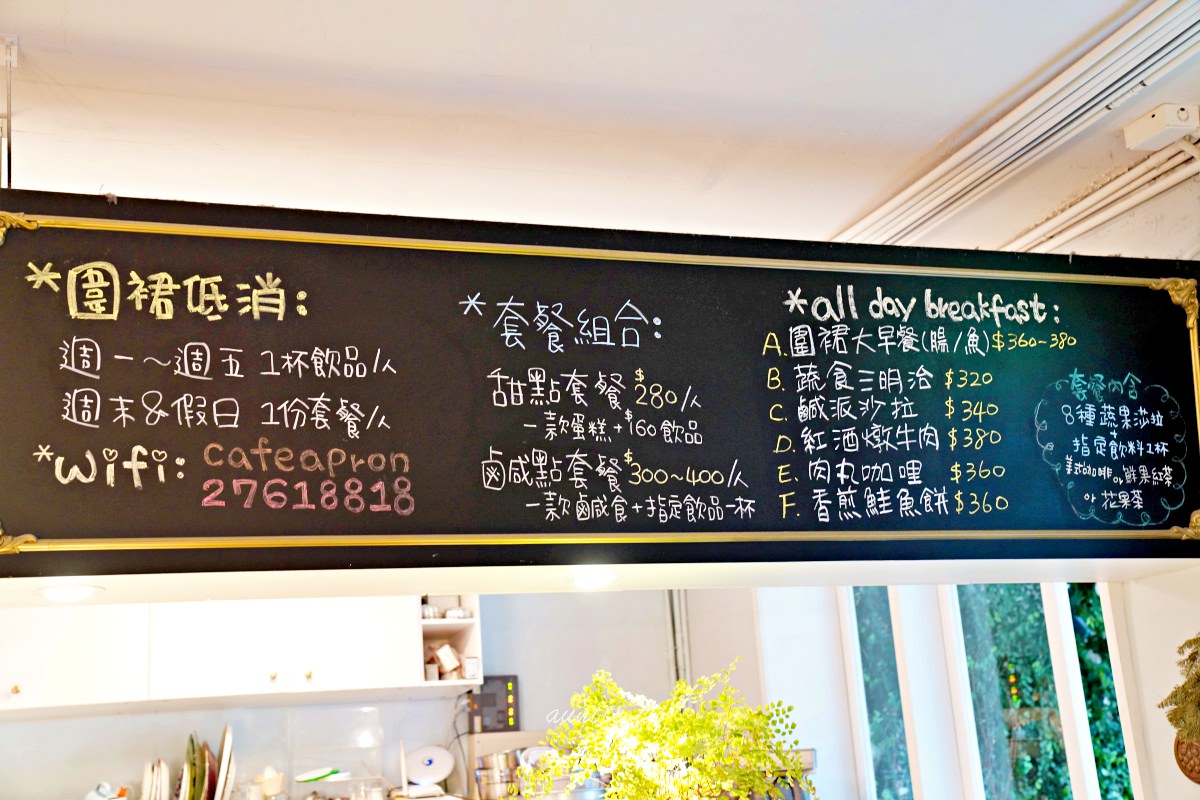 *圍裙低消:
週一～週五 1杯飲品/人
週末&假日 1份套餐/人
*wifi: cafeapron
27618818
*套餐組合:
甜點套餐 $280/人
一款蛋糕+$160飲品
鹵咸點套餐 $300~400/人
一款鹹食+指定飲品一杯
*all day breakfast:
A. 圍裙大早餐(腸/魚) $360~380
B. 蔬食三明治 $320
C. 鹹派沙拉 $340
D. 紅酒燉牛肉 $380
E. 肉丸咖哩 $360
F. 香煎鮭魚餅 $360
套餐內含
8種蔬果莎拉
+
指定飲料1杯
美式咖啡or鮮果紅茶
or 花果茶